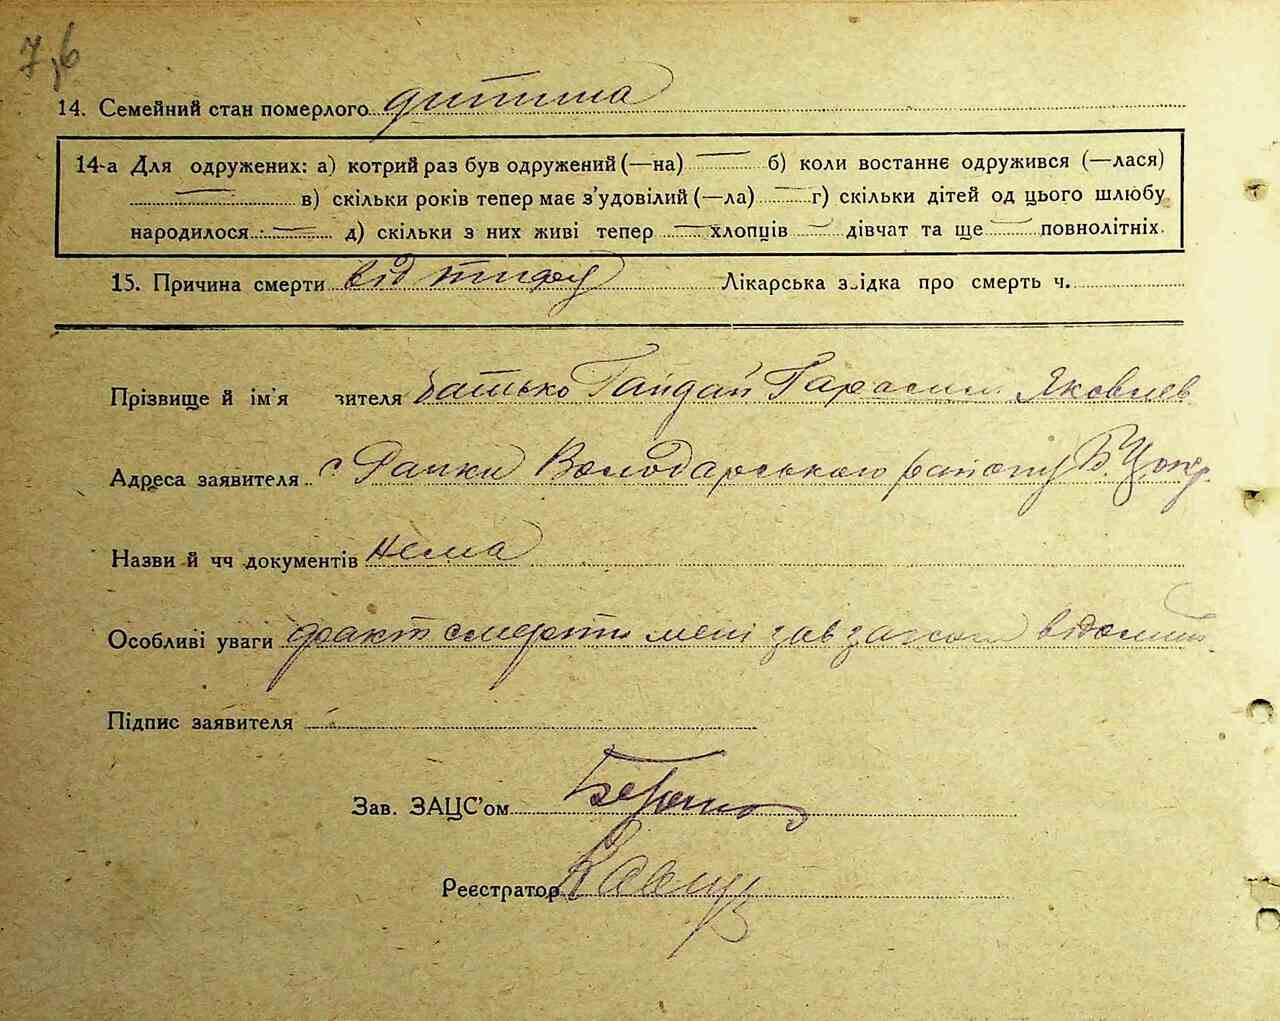 7,6
14. Семейний стан померлого дитина
14-а Для одружених: а) котрий раз був одружений (—на) — б) коли востаннє одружився (—лася)
— в) скільки років тепер має з’удовілий (—ла) — г) скільки дітей од цього шлюбу
народилося — д) скільки з них живі тепер — хлопців — дівчат та ще — повнолітніх.
15. Причина смерти від тифу Лікарська з ідка про смерть ч.
Прізвище й ім’я зителя батько Гайдай Гарасим Яковлев
Адреса заявителя с Рачки Володарського району Б.Цокр.
Назви й чч документів нема
Особливі уваги факт смерти мені відомий
Підпис заявителя
Зав. ЗАЦС’ом
Реєстратор